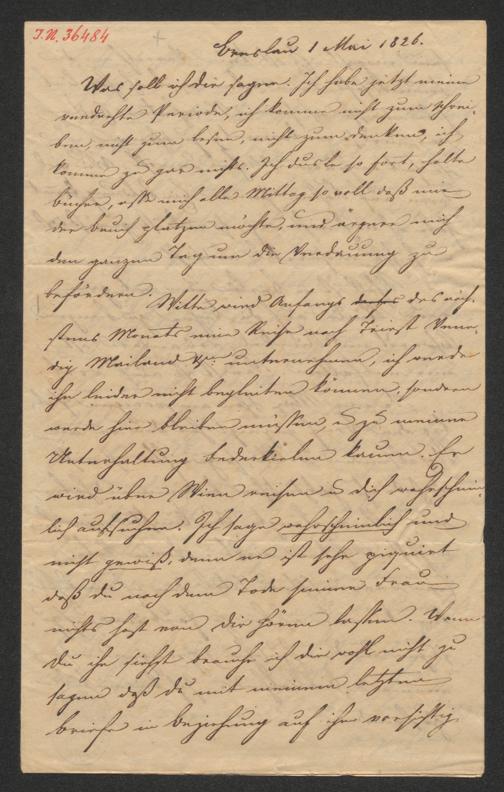 I.N. 36484
Breslau 1 Mai 1826.
Was soll ich dir sagen. Ich habe jetzt meine
verdrehte Periode, ich komme nicht zum schrei-
ben, nicht zum lesen, nicht zum denken, ich
komme zu gar nichts. Ich dusle so fort, halte
bücher, esse mich alle Mittag so voll daß mir
der bauch platzen möchte, und ärgere mich
den ganzen Tag um die Verdauung zu
befördern.
Witte wird Anfangs dieses des näch-
stens Monats eine Reise nach Triest Vene-
dig Mailand unternehmen, ich werde
ihn leider nicht begleiten können, sondern
werde hier bleiben müssen u zu meiner
Unterhaltung Federkielen kauen. Er
wird über Wien reisen u dich wahrschein-
lich aufsuchen. Ich sage wahrscheinlich und
nicht gewiß, denn er ist sehr piquirt
daß du nach dem Tode seiner Frau
nichts hast von dir hören lassen. Wenn
du ihn siehst brauche ich dir wohl nicht zu
sagen daß du mit meinen letzten
briefe in beziehung auf ihn vorsichtig